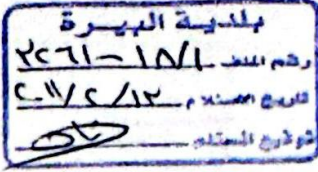 بلدية البيرة
رقم الملف ١٨/١ - ٢٢٦١
تاريخ الاستلام ٢٠١١/٢/١٢
توقيع المستلم